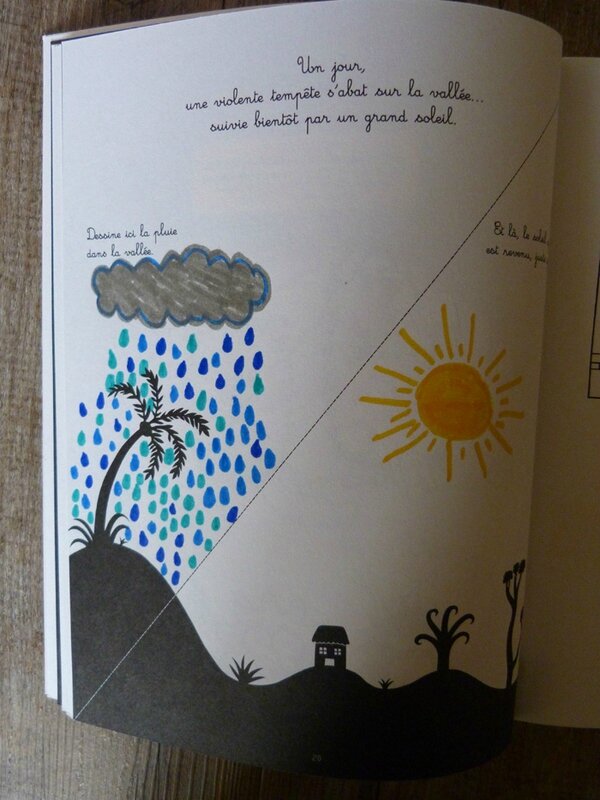 Un jour,
une violente tempête s'abat sur la vallée...
suivie bientôt par un grand soleil.
Dessine ici la pluie
dans la vallée.
Et là, le soleil
est revenu,
20